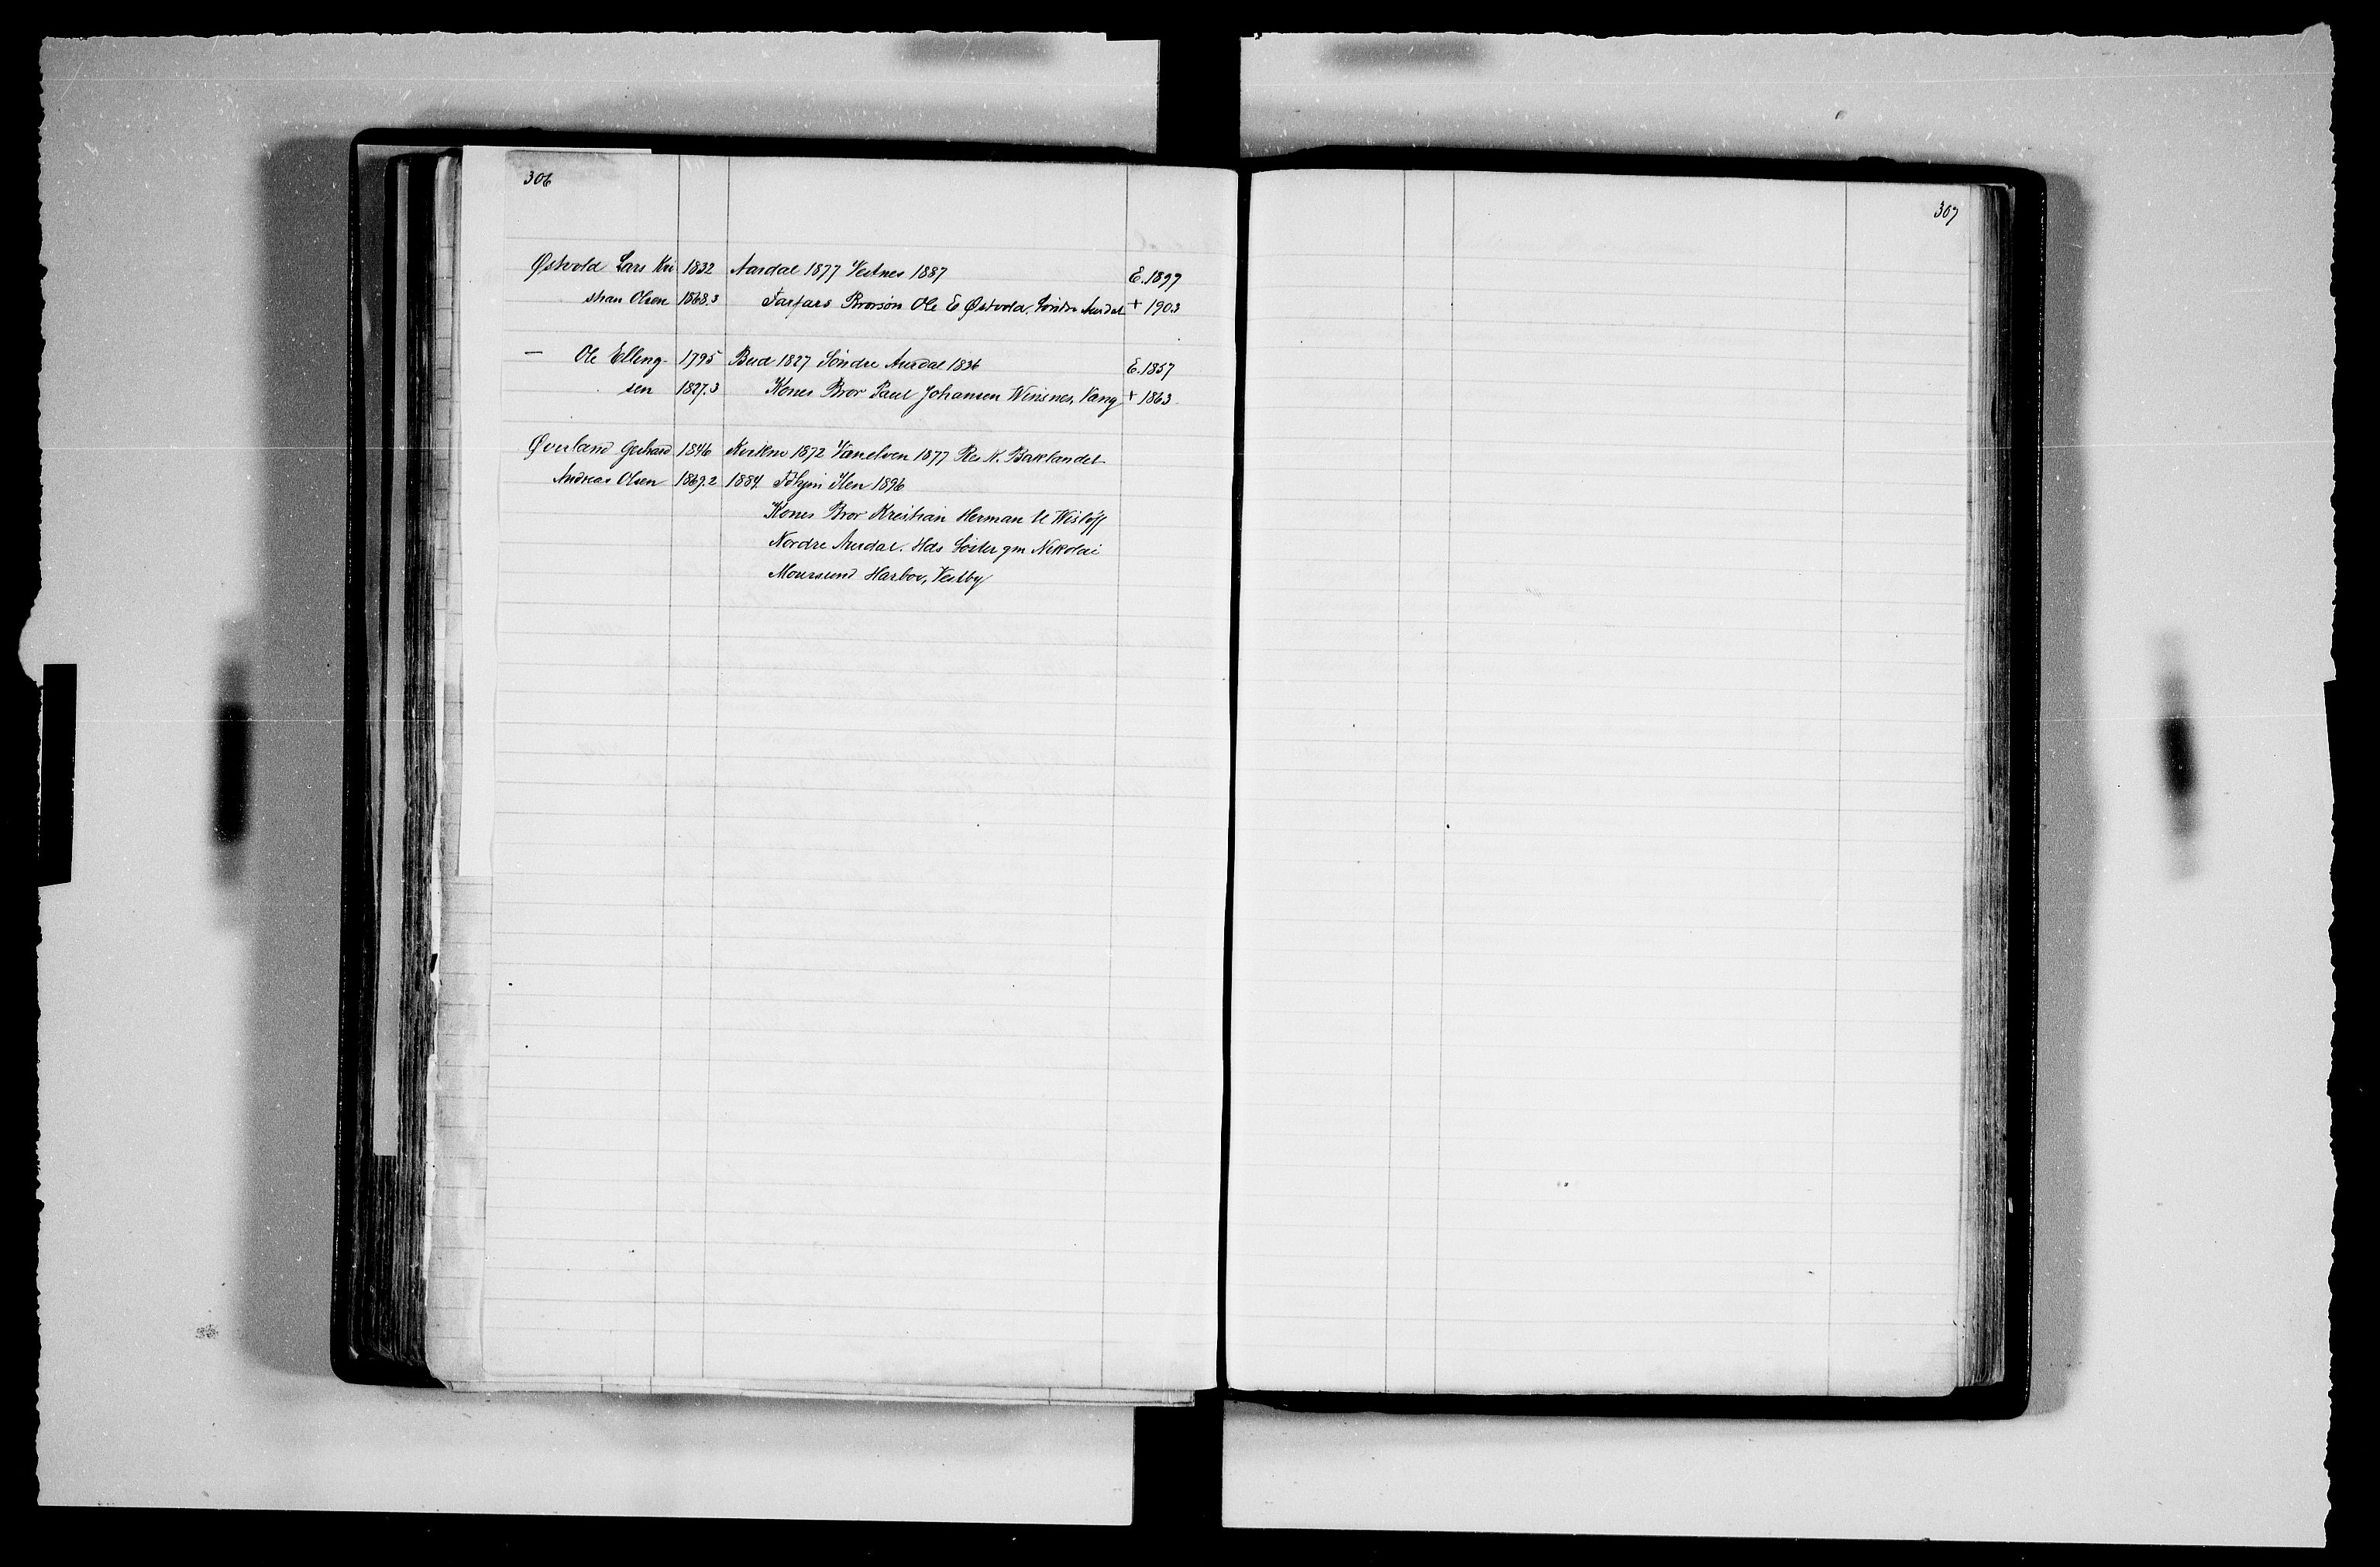 306
Østvold Lars Kri 1832 Aardal 1877 Vestnes 1887 E. 1897
stian Olsen 1868.3 Farfars Brorsön Ole E Østvold. Söndre Aurdal + 1903
— Ole Elling- 1795 Bud 1827 Söndre Aurdal 1836 E. 1857
sen 1827.3 Kones Bror Paul Johansen Winsnes, Vang + 1863
Øverland Gerhard 1846 1872 Vanelven 1877 Res K. Baklandet
Andreas Olsen 1869.2 1884. Ilen 1896
Kones Bror Kristian Herman U Wislöff
Nordre Aurdal. Hds Söster gm Nikolai
Moursund Harboe, Vestby
307